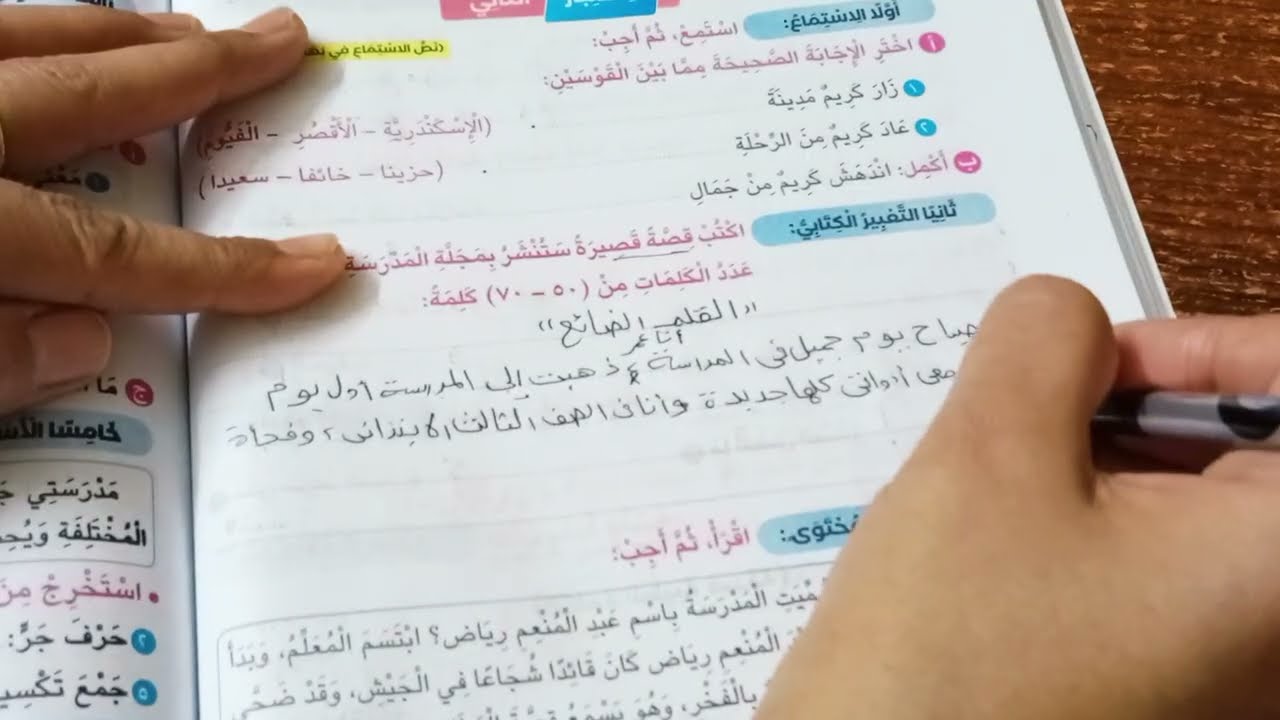 الثاني
أَوَّلًا الِاسْتِمَاعُ: اسْتَمِعْ، ثُمَّ أَجِبْ:
(نَصُّ الِاسْتِمَاعِ فِي
أ اخْتَرِ الْإِجَابَةَ الصَّحِيحَةَ مِمَّا بَيْنَ الْقَوْسَيْنِ:
١ زَارَ كَرِيمٌ مَدِينَةَ . (الْإِسْكَنْدَرِيَّةِ - الْأَقْصُرِ - الْفَيُّومِ)
٢ عَادَ كَرِيمٌ مِنَ الرِّحْلَةِ . (حزينا - خائفا - سعيدا)
ب أَكْمِلْ: انْدَهَشَ كَرِيمٌ مِنْ جَمَالِ
ثَانِيًا التَّعْبِيرُ الْكِتَابِيُّ: اكْتُبْ قِصَّةً قَصِيرَةً سَتُنْشَرُ بِمَجَلَّةِ الْمَدْرَسَةِ
عَدَدُ الْكَلِمَاتِ مِنْ (٥٠ - ٧٠) كَلِمَةً:
"القلم الضائع"
أنا عمر
يوم جميل في المدرسة ذهبت إلى المدرسة أول يوم
أدواتى كلها جديدة وأنا فى الصف الثالث الابتدائى، وفجأة
اقْرَأْ، ثُمَّ أَجِبْ:
الْمَدْرَسَةُ بِاسْمِ عَبْدِ الْمُنْعِمِ رِيَاض؟ ابْتَسَمَ الْمُعَلِّمُ، وَبَدَأَ
الْمُنْعِمِ رِيَاض كَانَ قَائِدًا شُجَاعًا فِي الْجَيْشِ، وَقَدْ ضَحَّى
بِالْفَخْرِ، وَهُوَ يَسْمَعُ قِصَّةَ
ج مَا
خَامِسًا
مَدْرَسَتِي
الْمُخْتَلِفَةِ
اسْتَخْرِجْ مِنَ
٢ حَرْفَ جَرٍّ:
٥ جَمْعَ